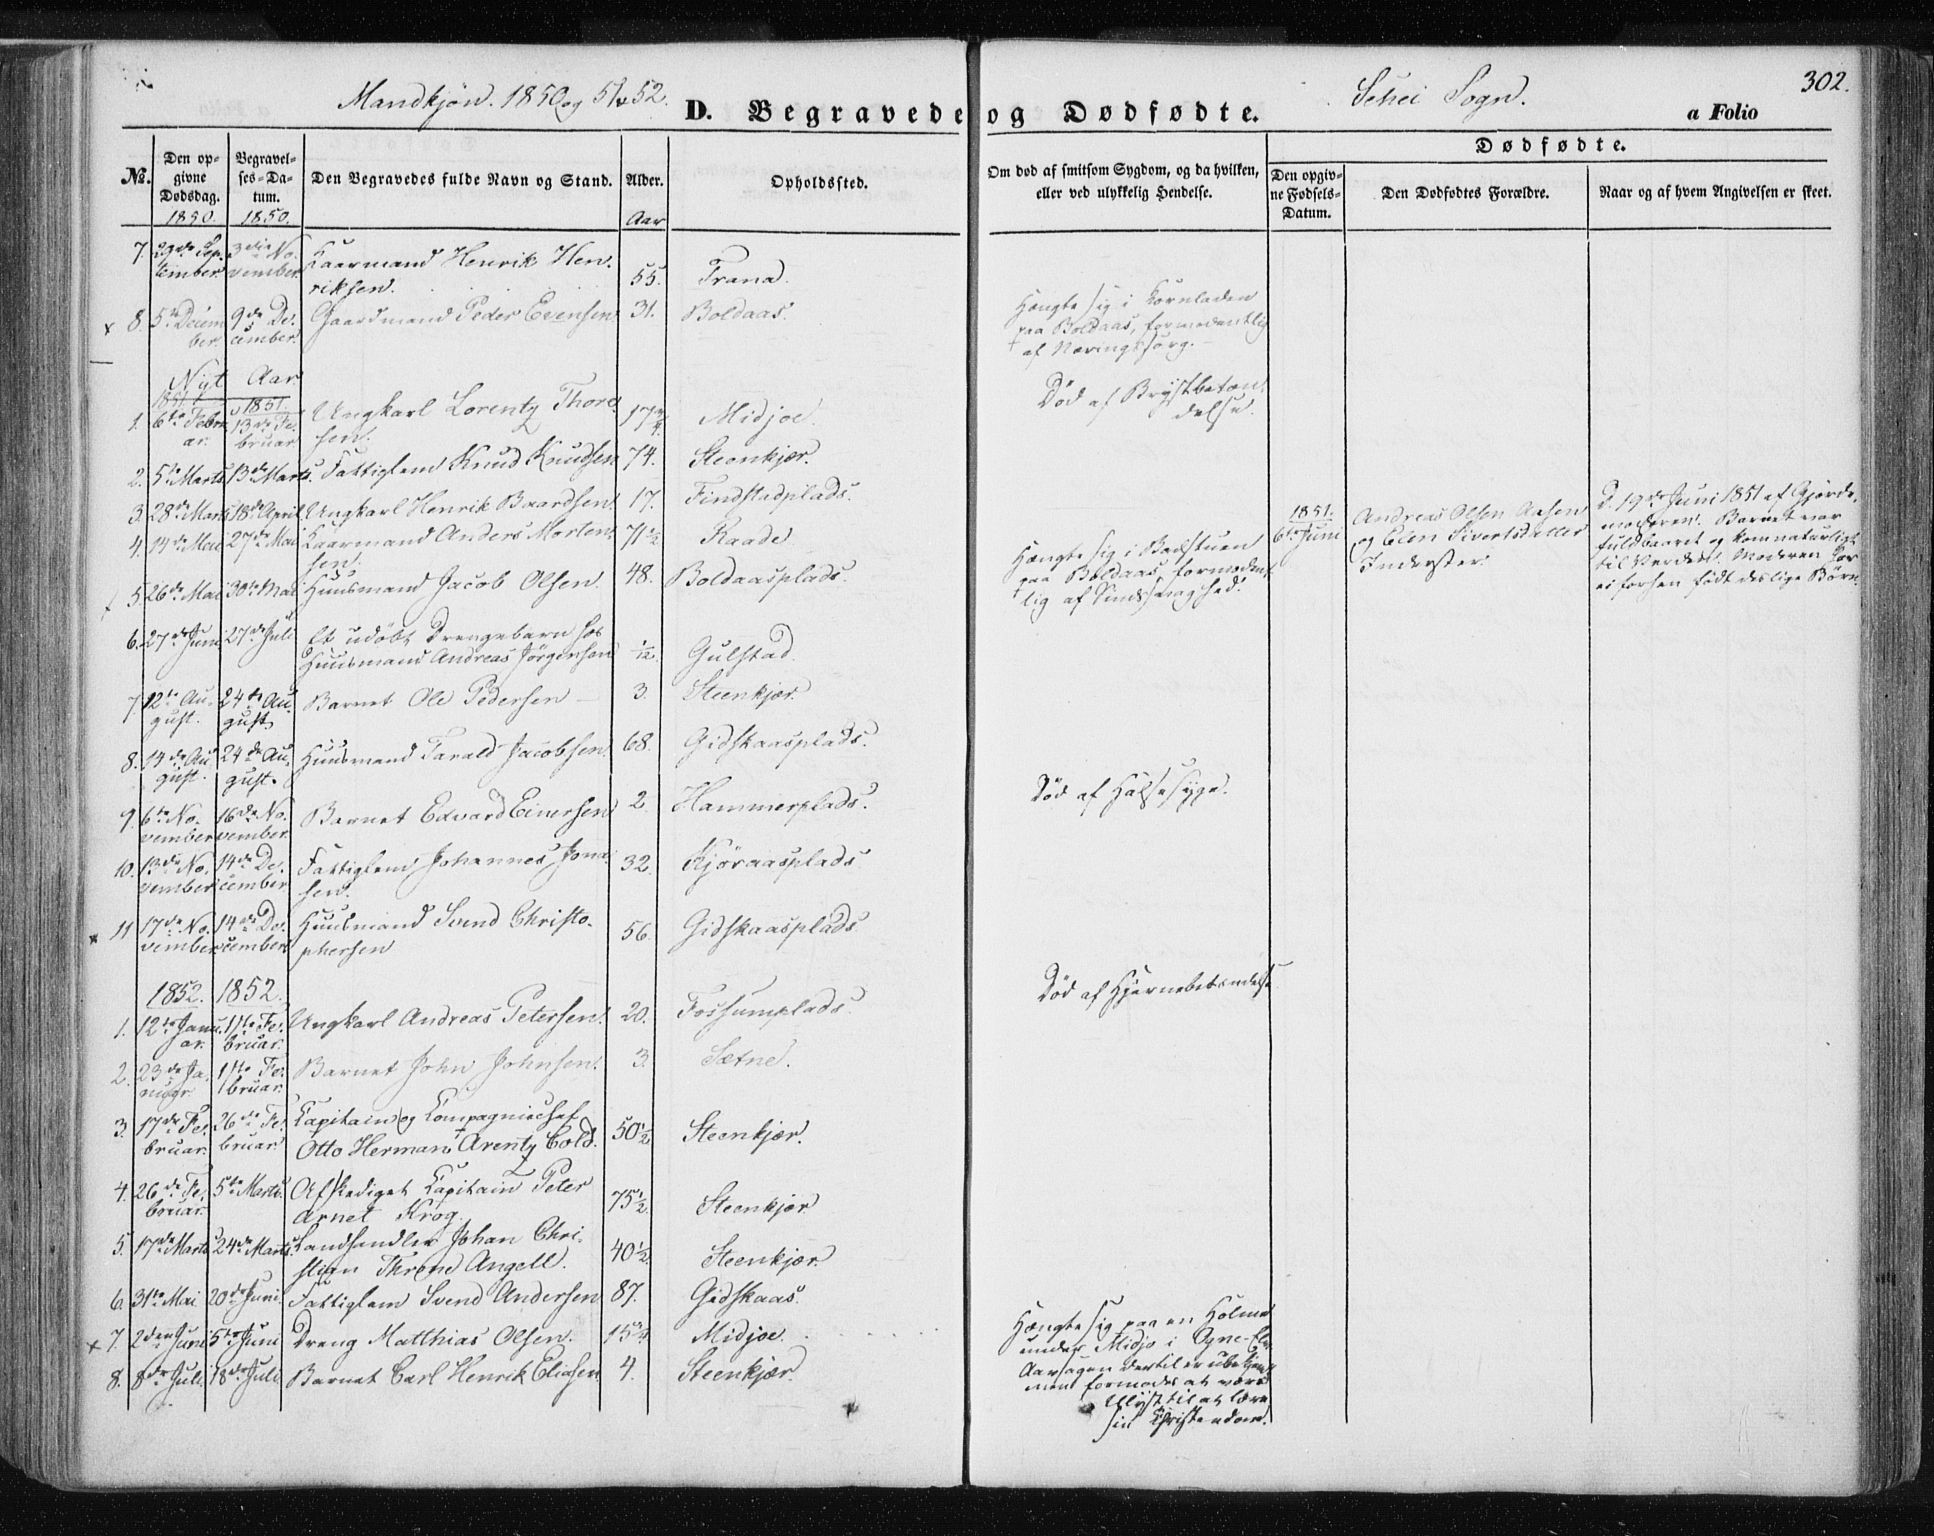 Mandkjøn. 1850 og 51 & 52.
D. Begravede og Dødfødte.
Sehei Sogn.
a Folio
302.
No.
Den opgivne Dødsdag.
Begravelses-Datum.
Den Begravedes fulde Navn og Stand.
Alder.
Opholdssted.
Om død af smitsom Sygdom, og da hvilken, eller ved ulykkelig Hendelse.
Dødfødte.
Den opgivne Fødsels-Datum.
Den Dødfødtes Forældre.
Naar og af hvem Angivelsen er skeet.
1850. 1850. Aar
7. 29de September. 3die November. Kaarmand Henrik Henriksen. 55. Trana.
8. 5te December. 9de December. Gaardmand Peder Evensen. 31. Boldaas. Hængte sig i Kornladen
paa Boldaas, formodentlig
af Næringssorg.
Nyt Aar
1851. 1851.
1. 6te Februar. 13de Februar Ungkarl Lorentz Thoresen. 17 Midjoe. Død af Brystbetændelse.
2. 5te Marts 13de Marts. Fattiglem Knud Knudsen 74. Steenkjær.
3. 28de Marts 18de April. Ungkarl Henrik Baardsen. 17. Findstadplads.
4. 14de Mai 27de Mai Kaarmand Anders Mortensen. 71 1/2 Raade
5. 26de Mai 30te Mai Huusmand Jacob Olsen. 48. Boldaasplads. Hængte sig i Badstuen
paa Boldaas, formodentlig af Sindssvaghed.
1851.
6te Juni
Andreas Olsen Aasen
og Elen Sivertsdatter
Inderster.
D. 19de Juni 1851 af Gjordemoderen. Barnet var
fuldbaaret og kom naturligt
til Verden. Moderen har
ei forhen født deslige Børn
6. 27de Juni 27de Juli Et udøbt Drengebarn hos
Huusmand Andreas Jørgensen 1/12. Gulstad.
7. 12te August. 24de August Barnet Ole Pedersen 3. Steenkjær.
8. 14de August. 24de August. Huusmand Tarald Jacobsen. 68. Gidskaasplads.
9. 6te November 16de November. Barnet Edvard Einersen 2. Hammerplads. Død af Halssyge.
10. 13de November 14de December Fattiglem Johannes Jonasen. 32. Kjøraasplads
11 17de November 14de December Huusmand Svend Christophersen 56. Gidskaasplads
1852. 1852.
1. 12te Januar. 11te Februar. Ungkarl Andreas Petersen. 20. Fossumplads. Død af Hjernebetændelse
2. 23de Januar. 11te Februar. Barnet John Johnsen. 3. Sætne.
3. 17de Februar. 26de Februar. Kapitain og Kompagniechef
Otto Herman Arentz Cold. 50 1/2 Steenkjær.
4. 26de Februar. 5te Marts. Afskediget Kapitain Peter
Arnet Krog. 75 1/2. Steenkjær
5. 17de Marts 24de Marts. Landhandler Johan Christian Threne Angell. 40 1/2. Steenkjær.
6. 31te Mai 20de Juni. Fattiglem Svend Andersen 87. Gidskaas.
7. 2den Juni 5te Juni Dreng Matthias Olsen. 15 Midjoe. Hængte sig paa en Holme
under Midjo i Ogne-Elv.
Aarsagen dertil er ubekjendt
men formodes at være
Ulyst til at lære
sin Christendom.
8. 8de Juli. 18de Juli. Barnet Carl Henrik Eliasen 4. Steenkjær.